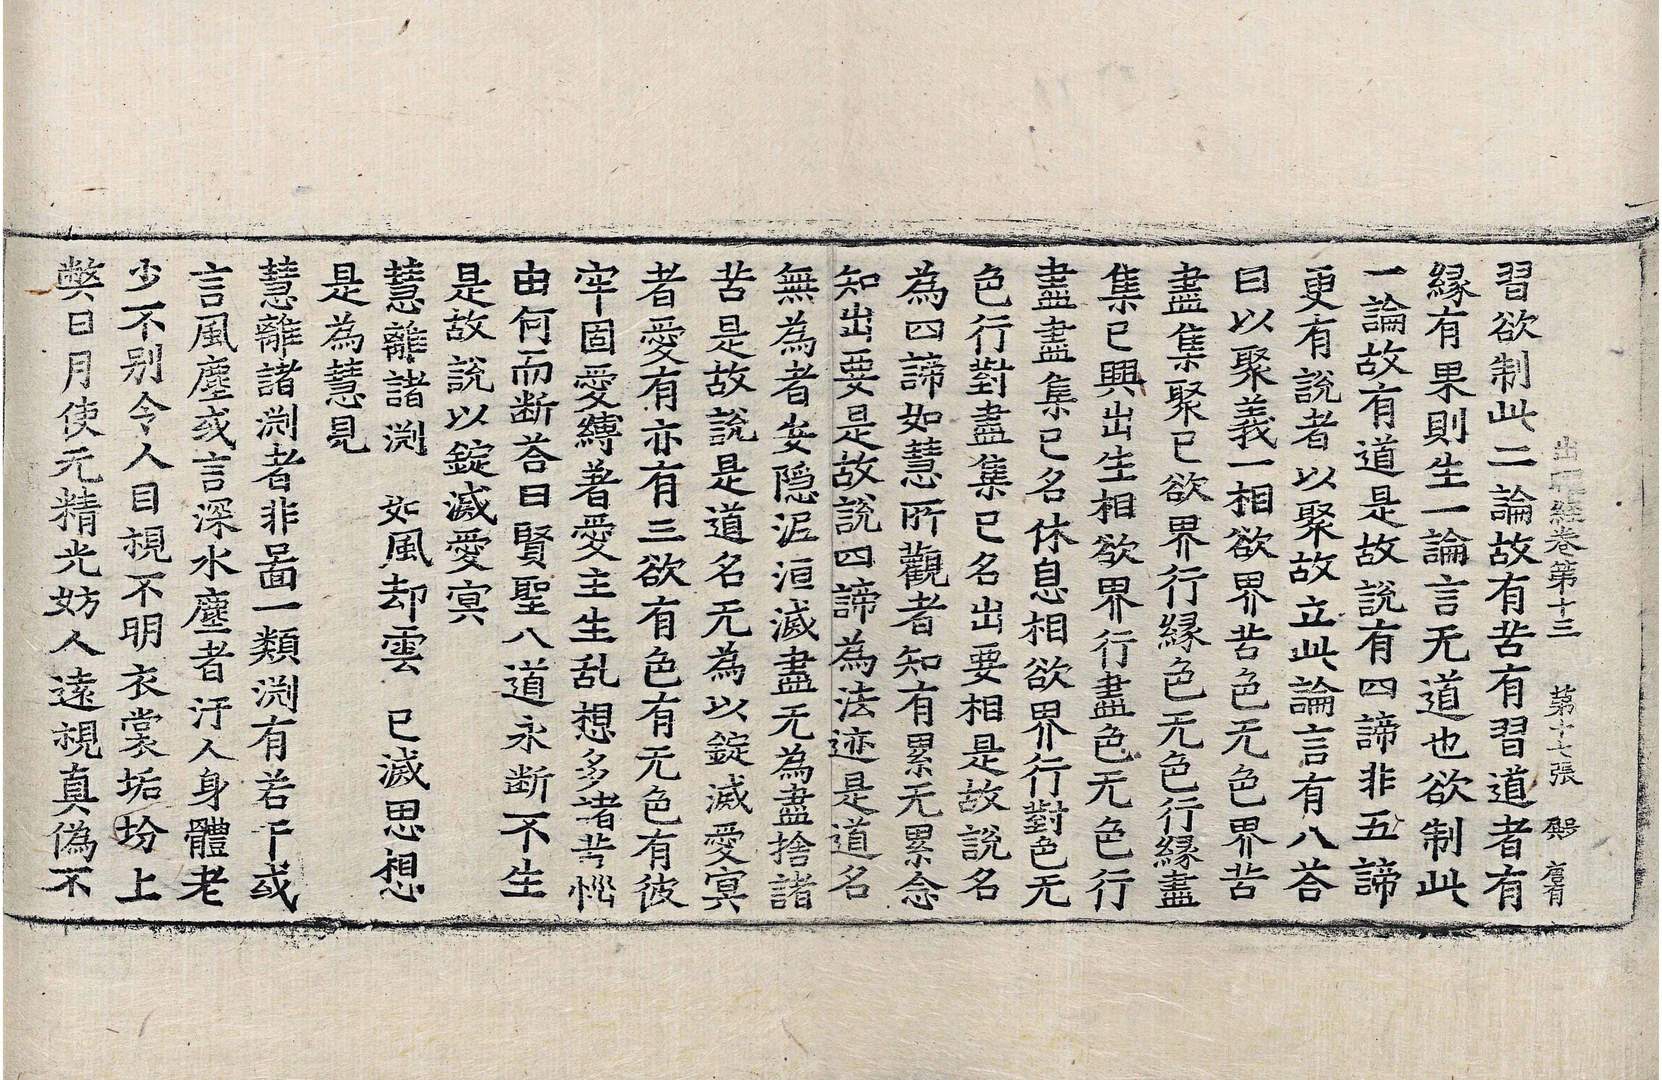 出曜經卷第十三 第十七張 殷 唐有
習欲制此二論故有苦有習道者有
緣有果則生一論言无道也欲制此
一論故有道是故說有四諦非五諦
更有說者以聚故立此論言有八荅
曰以聚義一相欲界苦色无色界苦
盡集聚已欲界行緣色无色行緣盡
集已興出生相欲界行盡色无色行
盡盡集已名休息相欲界行對色无
色行對盡集已名出要相是故說名
為四諦如慧所觀者知有累无累念
知出要是故說四諦為法迹是道名
無為者安隱泥洹滅盡无為盡捨諸
苦是故說是道名无為以錠滅愛冥
者愛有亦有三欲有色有无色有彼
牢固愛縛著愛主生乱想多諸苦惱
由何而断荅曰賢聖八道永断不生
是故說以錠滅愛冥
慧離諸渕 如風却雲 已滅思想
是為慧見
慧離諸渕者非啚一類渕有若干或
言風塵或言深水塵者汙人身體老
少不別令人目視不明衣裳垢坋上
弊日月使无精光妨人遠視真偽不